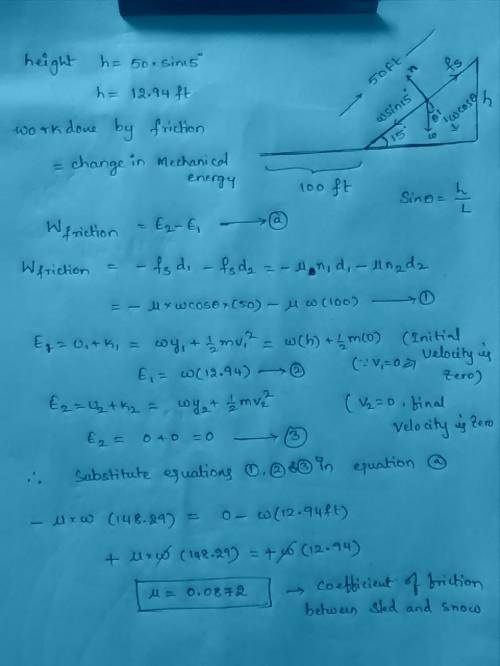 height h = 50 × sin15°
h = 12.94 ft
work done by friction
= change in Mechanical
energy
50ft
fs
n
wsin15°
θ
wcosθ
w
h
15°
100 ft
Sinθ = h/L
Wfriction = E2 - E1 → ⓐ
Wfriction = - fs d1 - fs d2 = - μ n1 d1 - μ n2 d2
= - μ × w cosθ × (50) - μ w (100) → ①
E1 = U1 + K1 = wy1 + 1/2 mv1² = w(h) + 1/2 m(0) (Initial
E1 = w(12.94) → ② (∵ v1 = 0 ⇒ velocity is
zero)
E2 = U2 + K2 = wy2 + 1/2 mv2² (V2 = 0, final
velocity is zero
E2 = 0 + 0 = 0 → ③
∴ Substitute equations ①, ② & ③ in equation ⓐ
- μ × w (148.29) = 0 - w(12.94ft)
+ μ × w (148.29) = + w (12.94)
μ = 0.0872 → coefficient of friction
between sled and snow